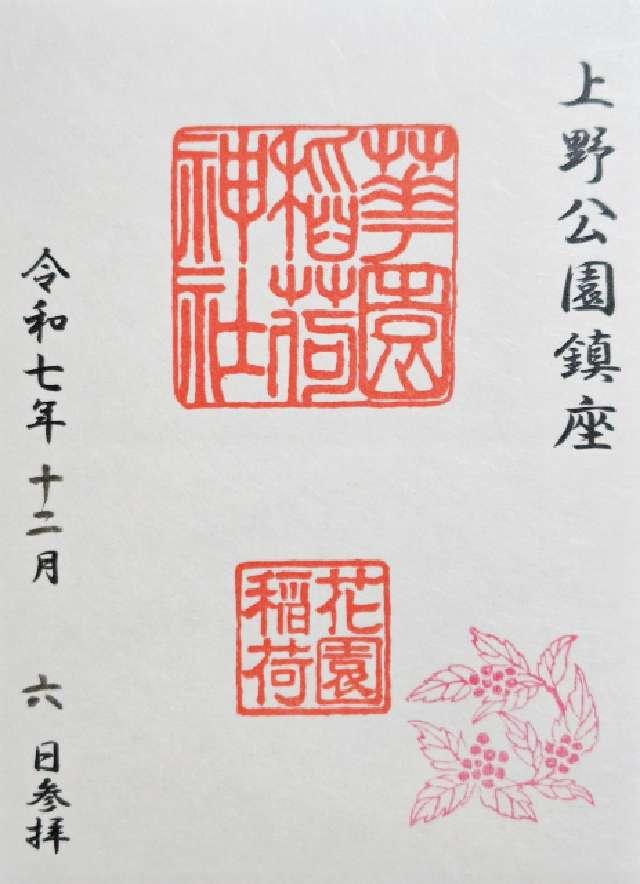 上野公園鎮座
華園
稲荷
神社
花園
稲荷
令和七年十二月六日参拝